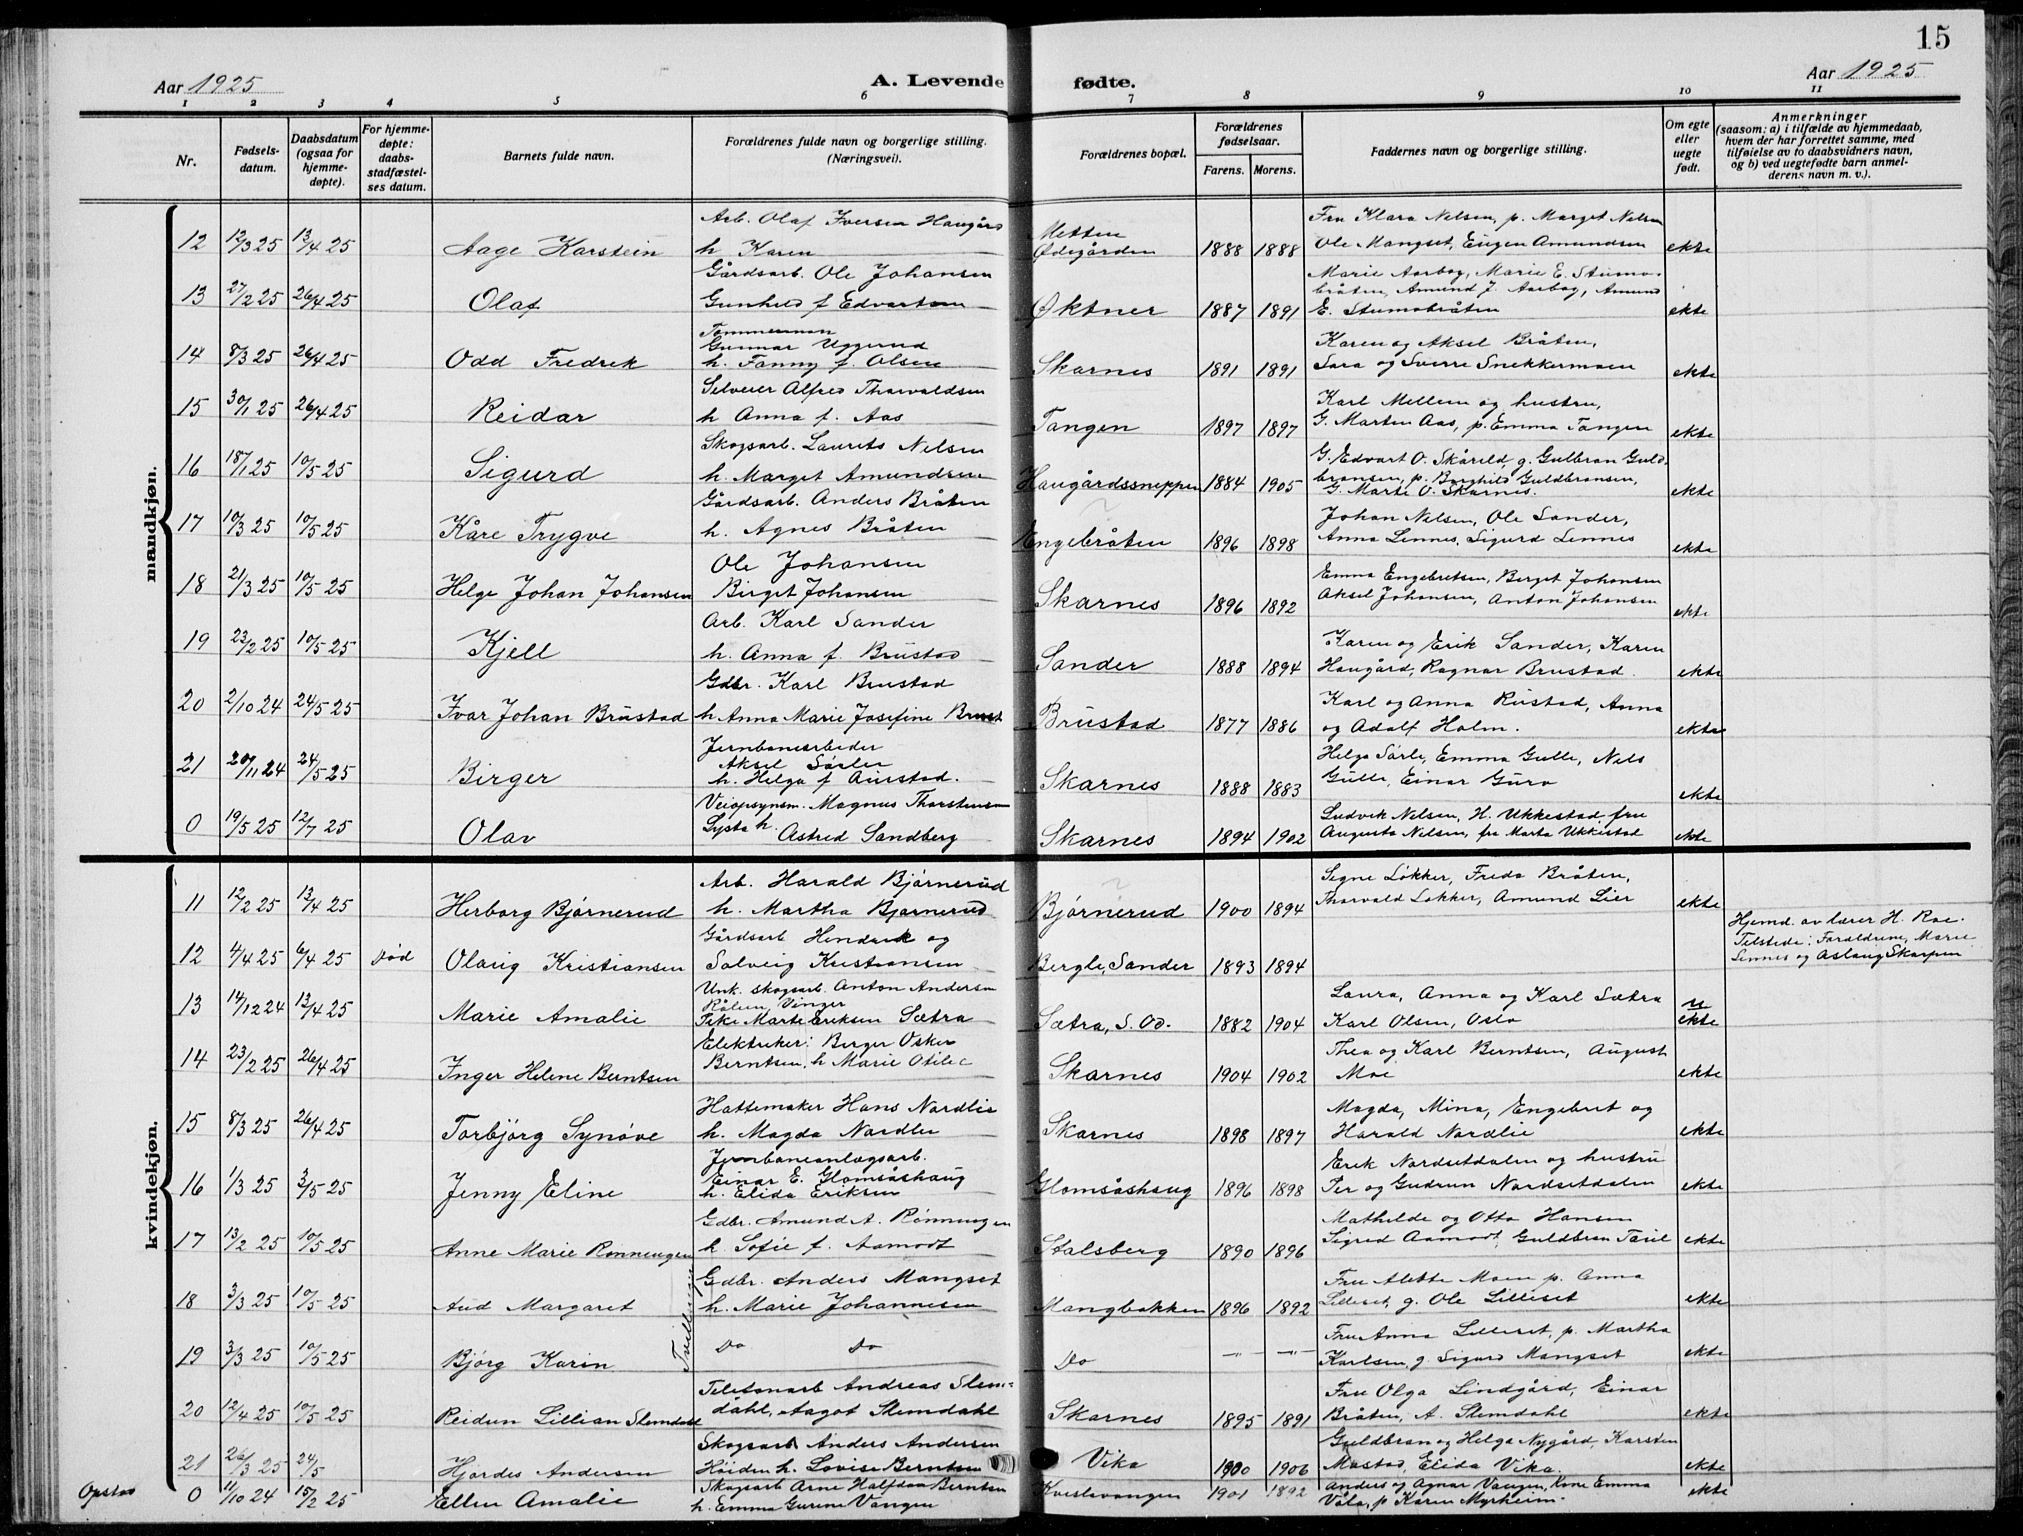 15
Aar 1925
A. Levende fødte.
Aar 1925
1 2 3 4 5 6 7 8 9 10 11
Nr.
Fødsels-
datum.
Daabsdatum
(ogsaa for
hjemme-
døpte).
For hjemme-
døpte:
daabs-
stadfæstel-
ses datum.
Barnets fulde navn.
Forældrenes fulde navn og borgerlige stilling.
(Næringsvei).
Forældrenes bopæl.
Forældrenes
fødselsaar.
Farens. Morens.
Faddernes navn og borgerlige stilling.
Om egte
eller
uegte
født.
Anmerkninger
(saasom: a) i tilfælde av hjemmedaab,
hvem der har forrettet samme, med
tilføielse av to daabsvidners navn,
og b) ved uegtefødte barn anmel-
derens navn m. v.).
mandkjøn.
Arb. Olaf Iversen Haugård Metten Fru Klara Nelsen, p. Marget Nelsen
12 12/3 25 13/4 25 Aage Karstein h. Karen Ødegården 1888 1888 Ole Mangset, Eugen Amundsen ekte
Gårdsarb. Ole Johansen Marie Aarbog, Marie E. Stumo-
13 27/2 25 26/4 25 Olaf Gunhild f. Edvartsen Øktner 1887 1891 bråten, Amund J. Aarbog, Amund
E. Stumobråten ekte
Tømmerman
Gunnar Uggerud Karen og Aksel Bråten,
14 8/3 25 26/4 25 Odd Fredrik h. Fanny f. Olsen Skarnes 1891 1891 Sara og Sverre Snekkermoen ekte
Selveier Alfred Thorvaldsen Karl Mellem og hustru,
15 30/1 25 26/4 25 Reidar h. Anna f. Aas Tangen 1897 1897 G. Marten Aas, p. Emma Tangen ekte
Skogsarb. Laurits Nelsen G. Edvart O. Skåreld, g. Gulbran Guld-
16 18/1 25 10/5 25 Sigurd h. Marget Amundsen Haugårdssneppen 1884 1905 bransen, p. Borghild Guldbransen,
G. Marte O. Skarnes. ekte
Gårdsarb. Anders Bråten Johan Nelsen, Ole Sander,
17 10/3 25 10/5 25 Kåre Trygve h. Agnes Bråten Engebråten 1896 1898 Anna Lennes, Sigurd Lennes ekte
Ole Johansen Emma Engebretsen, Berget Johansen
18 21/3 25 10/5 25 Helge Johan Johansen Birget Johansen Skarnes 1896 1892 Aksel Johansen, Anton Johansen ekte
Arb. Karl Sander Karen og Erik Sander, Karen
19 23/2 25 10/5 25 Kjell h. Anna f. Brustad Sander 1888 1894 Haugård, Ragnar Brustad. ekte
Gdbr. Karl Brustad Karl og Anna Rustad, Anna
20 2/10 24 24/5 25 Ivar Johan Brustad h. Anna Marie Josefine Brust Brustad 1877 1886 og Adolf Holm. ekte
Jernbanearbeder Helga Sørle, Emma Gulle, Nils
21 20/11 24 24/5 25 Birger Aksel Sørlie
h. Helga f. Austad. Skarnes 1888 1883 Gulle, Einar Guro ekte
Veiopsynsm. Magnus Thorstensen Ludvik Nelsen, H. Ukkestad fru
0 19/5 25 12/7 25 Olav Lysta h. Astrid Sandberg Skarnes 1894 1902 Augusta Nelsen, fru Marta Ukkestad ekte
kvindekjøn.
Arb. Harald Bjørnerud Segne Løkker, Freda Bråten,
11 12/2 25 13/4 25 Herborg Bjørnerud h. Martha Bjørnerud Bjørnerud 1900 1894 Thorvald Løkker, Amund Lier ekte
Hjemd. av lærer H. Roe.
Gårdsarb Hendrik og Telstede: Foreldrene, Marie
12 4/4 25 6/4 25 død Olaug Kristiansen Solveig Kristiansen Bergle, Sander 1893 1894 Lennes og Aslaug Skarpen
Unk. skogsarb. Anton Andersen
Råten, Vinger Laura, Anna og Karl Sætra u
13 14/12 24 13/4 25 Marie Amalie Pike Marte Eriksen Sætra Sætra, S. Od. 1882 1904 Karl Olsen, Oslo ekte
Elektriker: Berger Osker Thea og Karl Berntsen, August
14 23/2 25 26/4 25 Inger Helene Berntsen Berntsen, h. Marie Otilie Skarnes 1904 1902 Moe ekte
Hattemaker Hans Nordlie Magda, Mina, Engebret og
15 8/3 25 26/4 25 Torbjörg Synøve h. Magda Nordlie Skarnes 1898 1897 Harald Nordlie ekte
Jernbaneanlægsarb. Erik Nordsetdalen og hustru
16 1/3 25 3/5 25 Jenny Eline Einar E. Glomsåshaug
h. Elida Eriksen Glomsåshaug 1896 1898 Per og Gudrun Nordsetdalen ekte
Gdbr. Amund A. Rønningen Mathilde og Otto Hansen
17 13/2 25 10/5 25 Anne Marie Rønningen h. Sofie f. Aamodt Stalsberg 1890 1896 Sigred Aamodt, Guldbran Taul ekte
Gdbr. Anders Mangset Fru Alette Moen p. Anna
18 3/3 25 10/5 25 Aud Margaret h. Marie Johannesen Mangbakken 1896 1892 Lilleset, g. Ole Lilleset ekte
Tvillinger
Do Do Fru Anna Lilleset, p. Martha
19 3/3 25 10/5 25 Bjørg Karin Do — — Karlsen, g. Sigurd Mangset ekte
Telefonarb Andreas Slem- Fru Olga Lindgård, Einar
20 12/4 25 10/5 25 Reidun Lillian Slemdahl dahl, Aagot Slemdahl Skarnes 1895 1891 Bråten, A. Slemdahl ekte
Skogsarb Anders Andersen Guldbran og Helga Nygård, Karsten
21 26/3 25 24/5 Hjørdes Andersen Høiden h. Lovise Berntsen Vika 1900 1906 Mostad, Elida Vika. ekte
Skogsarb Arne Halfdan Berntsen Anders og Agnar Vangen, kone Emma
Opstad 0 11/10 24 15/2 25 Ellen Amalie h. Emma Gurine Vangen Kverlsvangen 1901 1892 Våla, p Karen Myrheim. ekte